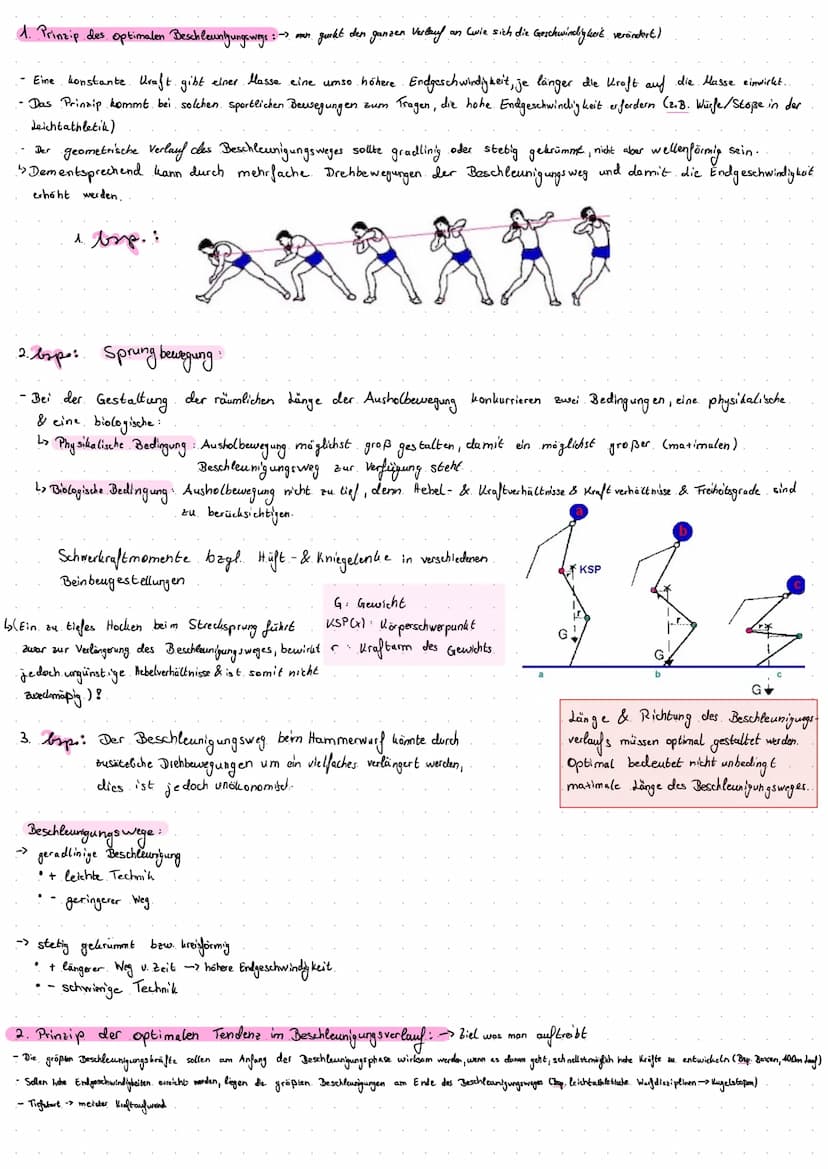 1. Prinzip des optimalen Beschleunigungswegs: → man guckt den ganzen Verlauf an (wie sich die Geschwindigkeit verändert)
- Eine konstante Kraft gibt einer Masse eine umso höhere Endgeschwindigkeit, je länger die Kraft auf die Masse einwirkt.
- Das Prinzip kommt bei solchen sportlichen Bewegungen zum Tragen, die hohe Endgeschwindigkeit erfordern (z.B. Würfe/Stöße in der
Leichtathletik)
- Der geometrische Verlauf des Beschleunigungsweges sollte gradlinig oder stetig gekrümmt, nicht aber wellenförmig sein.
↳ Dementsprechend kann durch mehrfache Drehbewegungen der Beschleunigungsweg und damit die Endgeschwindigkeit
erhöht werden.
1. bsp.:
2. bsp: Sprungbewegung:
- Bei der Gestaltung der räumlichen Länge der Ausholbewegung konkurrieren zwei Bedingungen, eine physikalische
& eine biologische:
↳ Physikalische Bedingung: Ausholbewegung möglichst groß gestalten, damit ein möglichst großer (maximalen)
Beschleunigungsweg zur Verfügung steht
↳ Biologische Bedingung: Ausholbewegung nicht zu tief, denn Hebel- & Kraftverhältnisse & Kraftverhältnisse & Freiheitsgrade sind
zu berücksichtigen.
a
b
c
KSP
r
G
r
G
r
G
a
b
c
Schwerkraftmomente bzgl. Hüft- & Kniegelenke in verschiedenen
Beinbeugestellungen
G: Gewicht
KSP(x): Körperschwerpunkt
r: Kraftarm des Gewichts
↳ (Ein zu tiefes Hocken beim Strecksprung führt
zwar zur Verlängerung des Beschleunigungsweges, bewirkt
jedoch ungünstige Hebelverhältnisse & ist somit nicht
zweckmäßig)!
Länge & Richtung des Beschleunigungs-
verlaufs müssen optimal gestaltet werden.
Optimal bedeutet nicht unbedingt
maximale Länge des Beschleunigungsweges.
3. bsp: Der Beschleunigungsweg beim Hammerwurf könnte durch
zusätzliche Drehbewegungen um ein vielfaches verlängert werden,
dies ist jedoch unökonomisch.
Beschleunigungswege:
→ geradlinige Beschleunigung
• + leichte Technik
• - geringerer Weg
→ stetig gekrümmt bzw. kreisförmig
• + längerer Weg u. Zeit → höhere Endgeschwindigkeit
• - schwierige Technik
2. Prinzip der optimalen Tendenz im Beschleunigungsverlauf: → Ziel was man auftreibt
- Die größten Beschleunigungskräfte sollen am Anfang der Beschleunigungsphase wirksam werden, wenn es darum geht, schnellstmöglich hohe Kräfte zu entwickeln (Bsp. Boxen, 100m Lauf)
- Sollen hohe Endgeschwindigkeiten erreicht werden, liegen die größten Beschleunigungen am Ende des Beschleunigungsweges (bsp. leichtathletische Wurfdisziplinen → Kugelstoßen)
- Tiefstart → meister Kraftaufwand